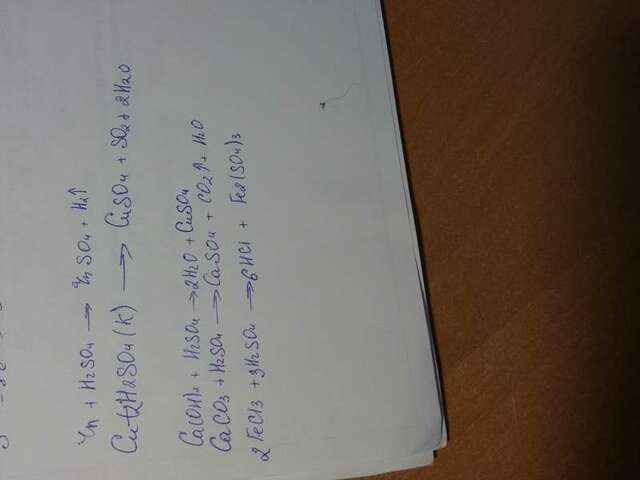 Zn + H2SO4 → ZnSO4 + H2↑
Cu + 2H2SO4 (K) → CuSO4 + SO2 + 2H2O
Ca(OH)2 + H2SO4 → 2H2O + CuSO4
CaCO3 + H2SO4 → CaSO4 + CO2↑ + H2O
2FeCl3 + 3H2SO4 → 6HCl + Fe2(SO4)3